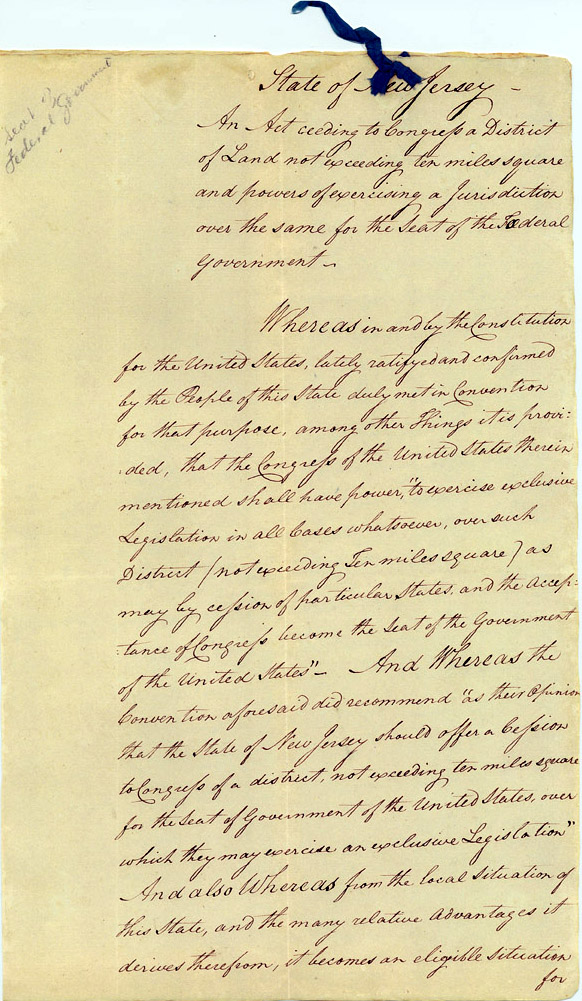 Seat of
Federal Government
State of New Jersey –
An Act ceeding to Congress a District
of Land not exceeding ten miles square
and powers of exercising a Jurisdiction
over the same for the Seat of the Fœderal
Government –
Whereas in and by the Constitution
for the United States, lately ratifyed and confirmed
by the People of this State duly met in Convention
for that purpose, among other Things it is provi:
:ded, that the Congress of the United States therein
mentioned shall have power, "to exercise exclusive
Legislation in all Cases whatsoever, over such
District (not exceeding Ten miles square) as
may by cession of particular States, and the accep:
:tance of Congress become the Seat of the Government
of the United States" – And Whereas the
Convention aforesaid did recommend "as their Opinion
that the State of New Jersey should offer a Cession
to Congress of a district, not exceeding ten miles square
for the Seat of Government of the United States, over
which they may exercise an exclusive Legislation"
And also Whereas from the local Situation of
this State, and the many relative advantages it
derives therefrom, it becomes an eligible situation
for